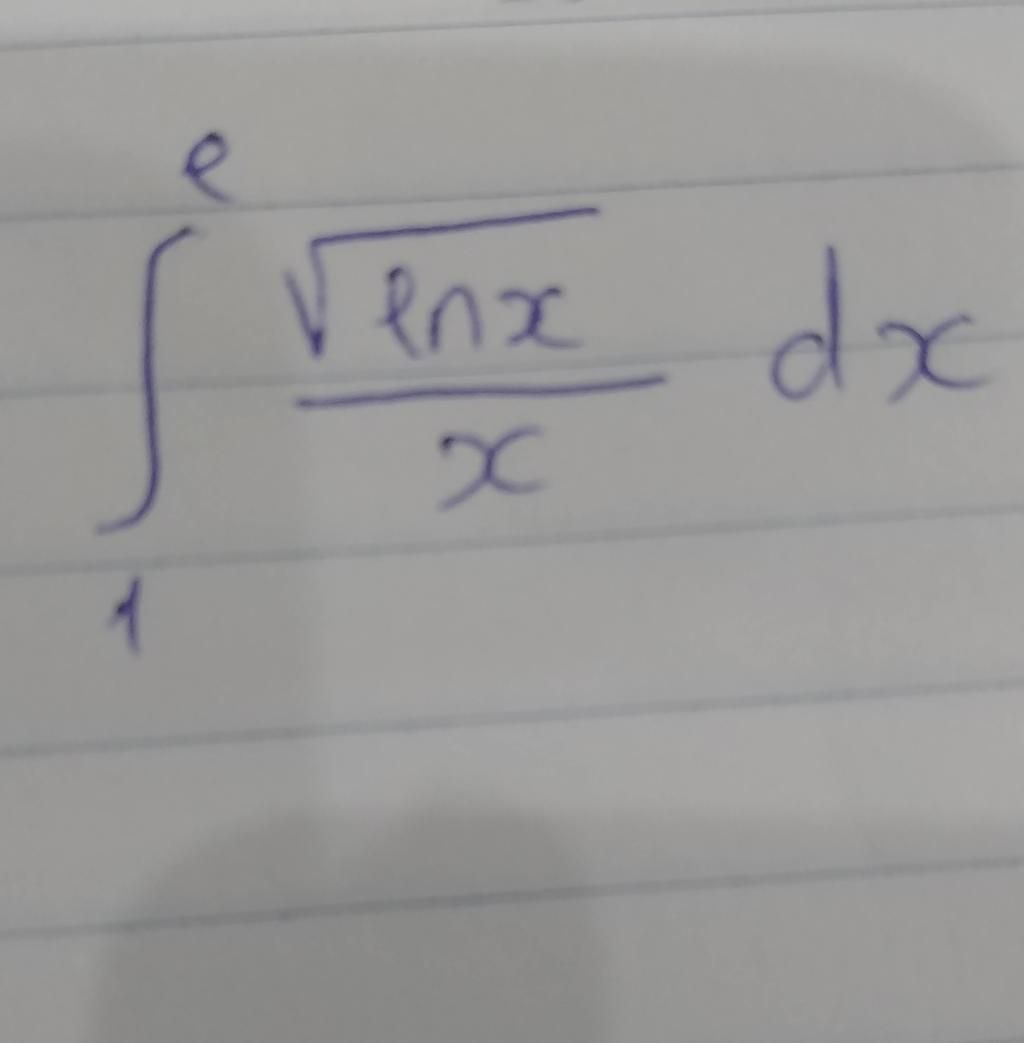 ∫₁ᵉ √(ln x) / x dx